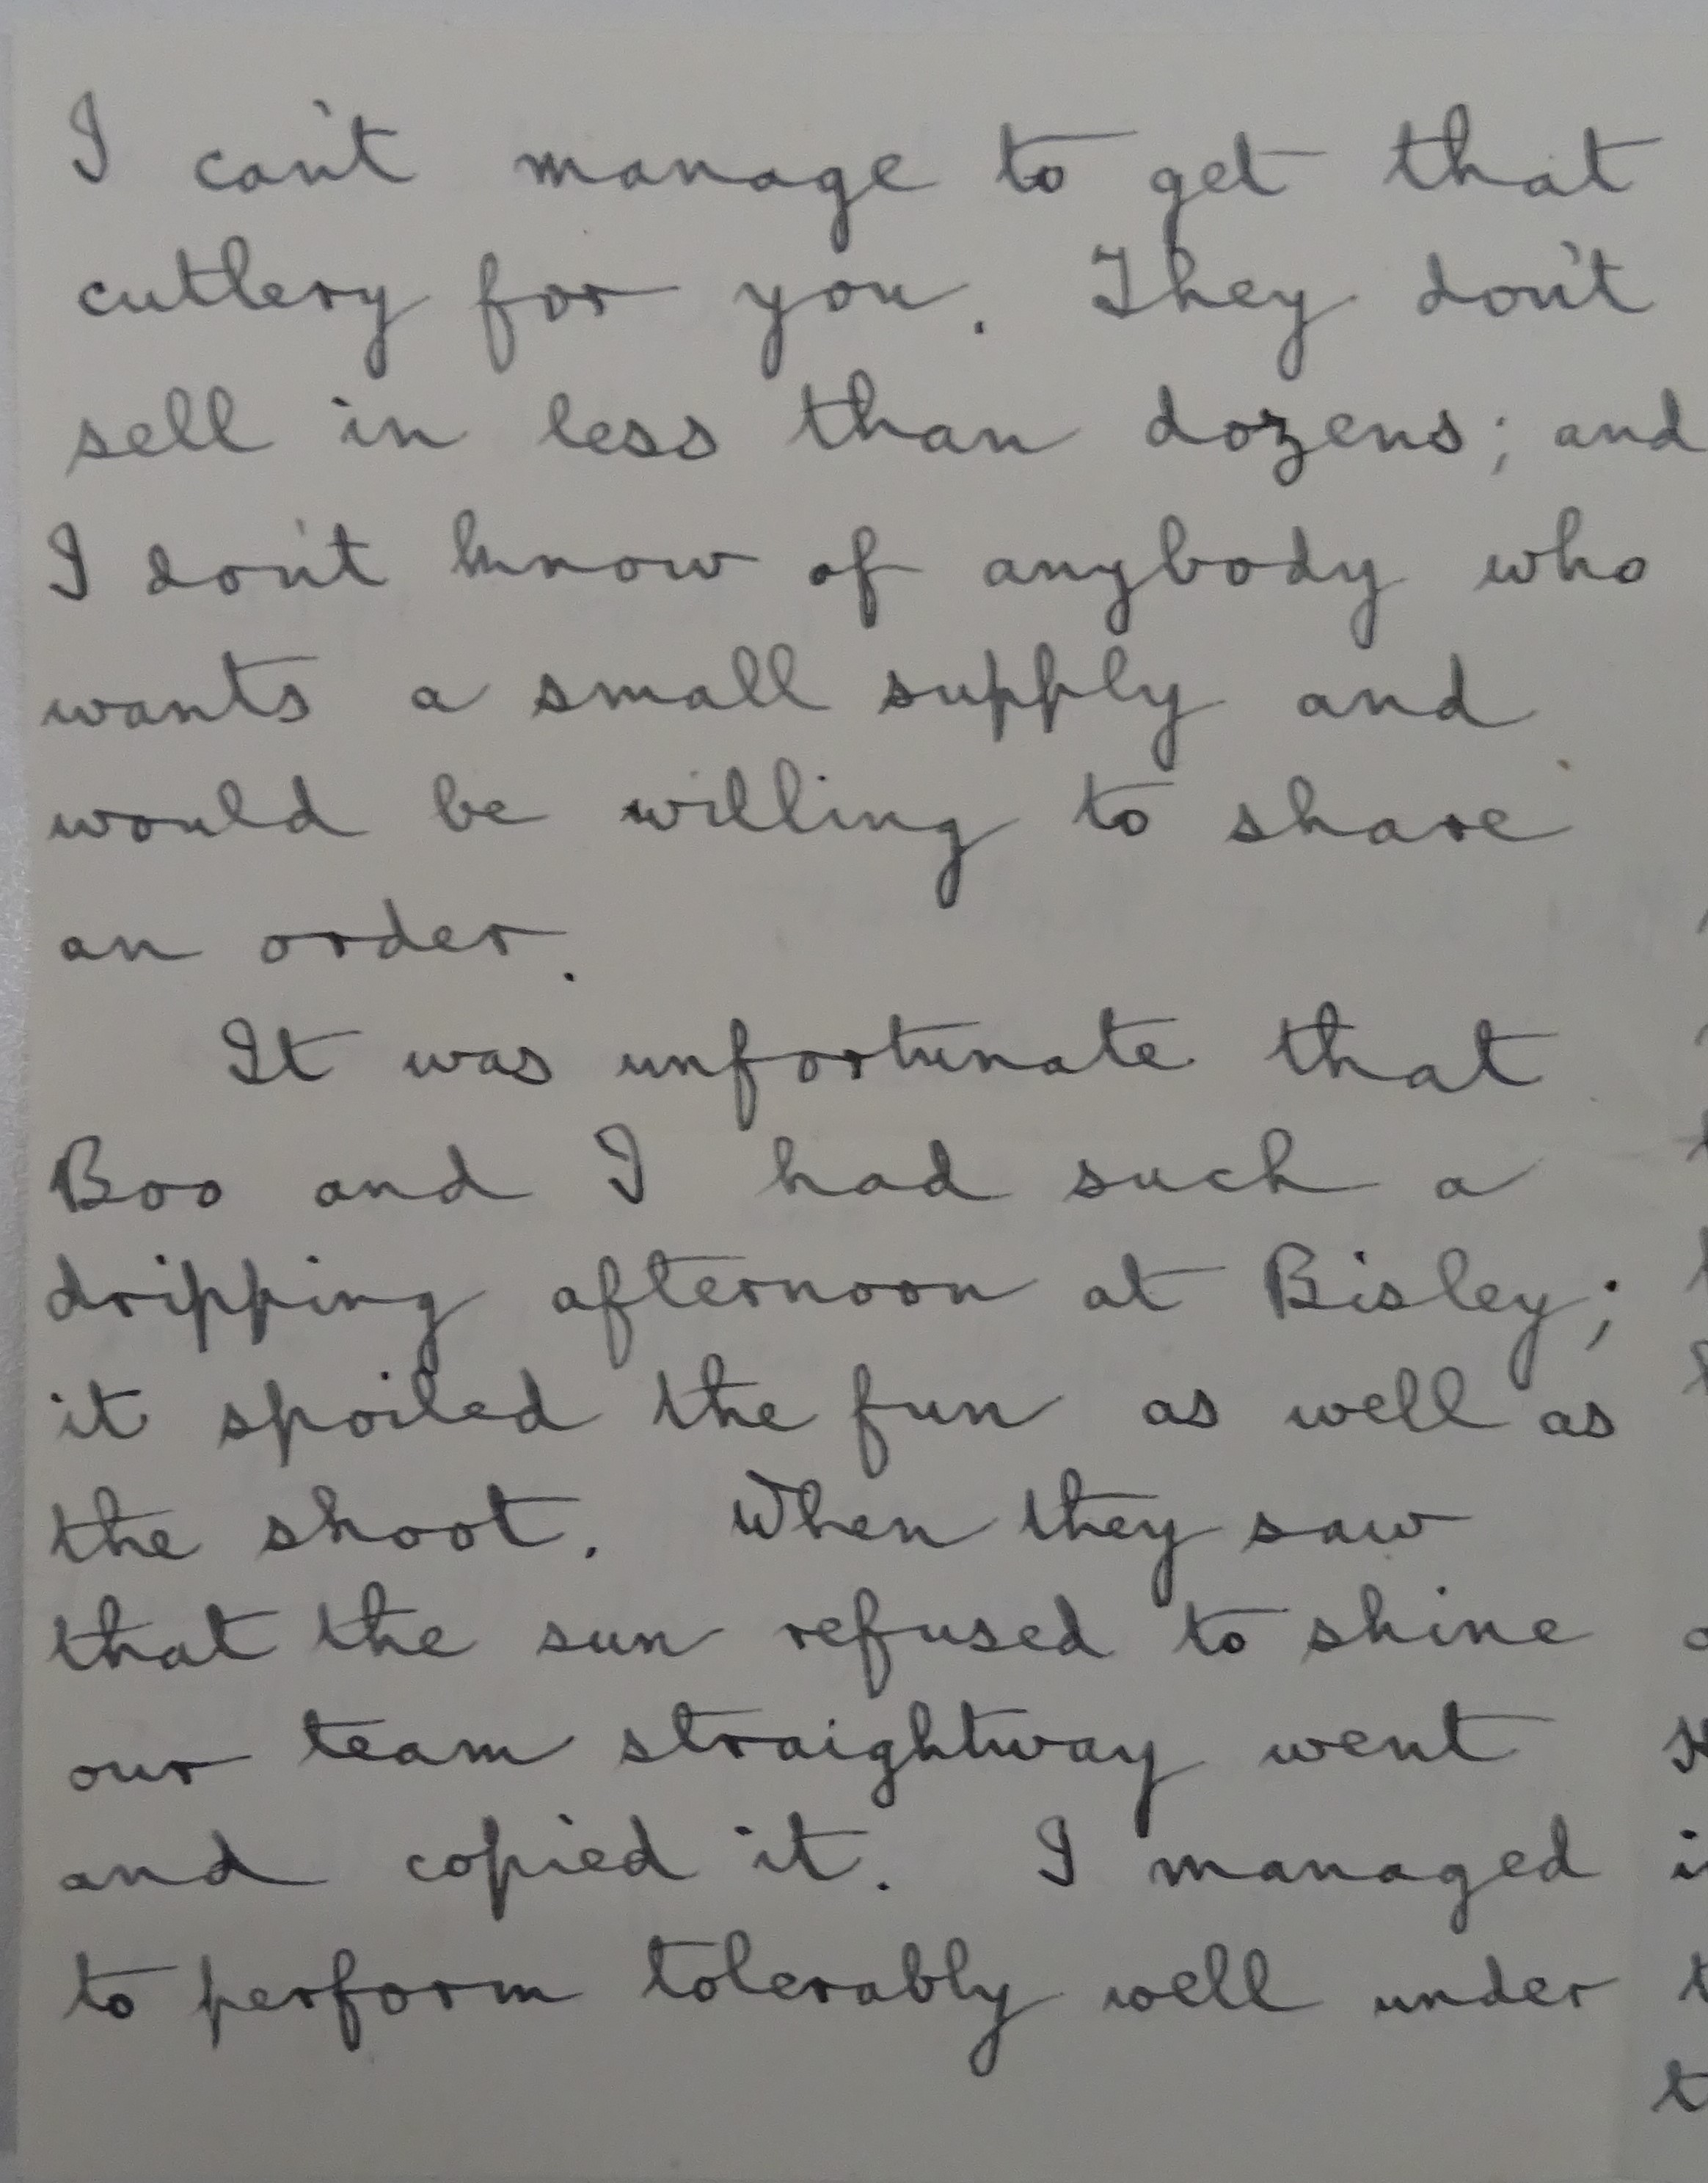 I can't manage to get that
cutlery for you. They don't
sell in less than dozens; and
I don't know of anybody who
wants a small supply and
would be willing to share
an order.
It was unfortunate that
Boo and I had such a
dripping afternoon at Bisley;
it spoiled the fun as well as
the shoot. When they saw
that the sun refused to shine
our team straightway went
and copied it. I managed
to perform tolerably well under